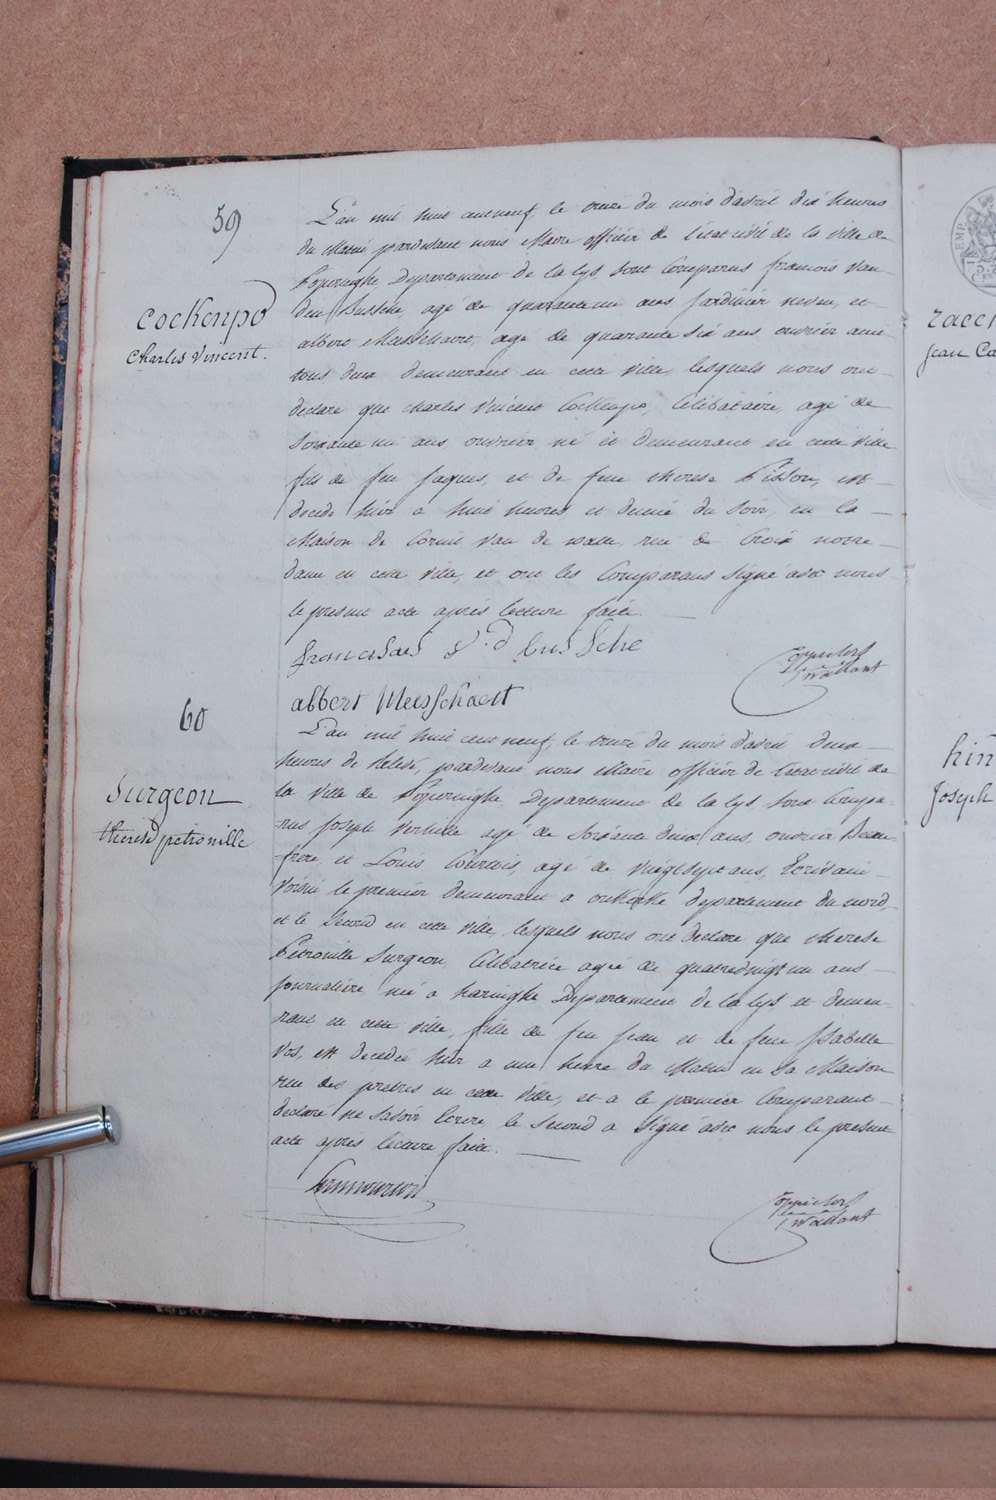 59
Cockenpo
Charles Vincent.
L'an mil huit cent neuf, le onze du mois d'avril dix heures
du Matin pardevant nous Maire officier de l'etat civil de la ville de
Poperinghe Departement de la Lys sont Comparus francois Van
den Bussche, agé de quarante un ans Jardinier neveu, et
albert Meesschaert, agé de quarante six ans ouvrier ami
tous deux demeurant en cette ville, lesquels nous ont
declaré que Charles Vincent Cockenpo, Celibataire, agé de
soixante un ans ouvrier né et demeurant en cette ville
fils de feu Jaques, et de feue therese Pisson, est
decedé hier a huit heures et demie du soir, en la
Maison de Cornil Van de walle, rue de Croix notre
dame en cette ville, et ont les Comparans signé avec nous
le present acte après lecture faite.
fransoies V.D bussche
albert Meesschaert
60
Surgeon
therese petronille
L'an mil huit cent neuf, le onze du mois d'avril deux
heures de relevé, pardevant nous Maire officier de l'etat civil de
la ville de Poperinghe Departement de la Lys sont Compa-
rus Joseph agé de soixante deux ans, ouvrier Beau-
frere et Louis agé de vingt sept ans, Ecrivain
Voisin le premier demeurant a departement du nord,
et le second en cette ville, lesquels nous ont declaré que therese
Petronille Surgeon, Celibatrice agée de quatrevingt un ans
journaliere née a haringhe Departement de la Lys et demeu-
rant en cette ville, fille de feu Jean et de feue Isabelle
Vos, est decedée hier a une heure du Matin en sa Maison
rue des pretres en cette ville, et a le premier Comparant
declaré ne savoir Ecrire le second a signé avec nous le present
acte après lecture faite.
racch
Jean Ca
hin
Joseph